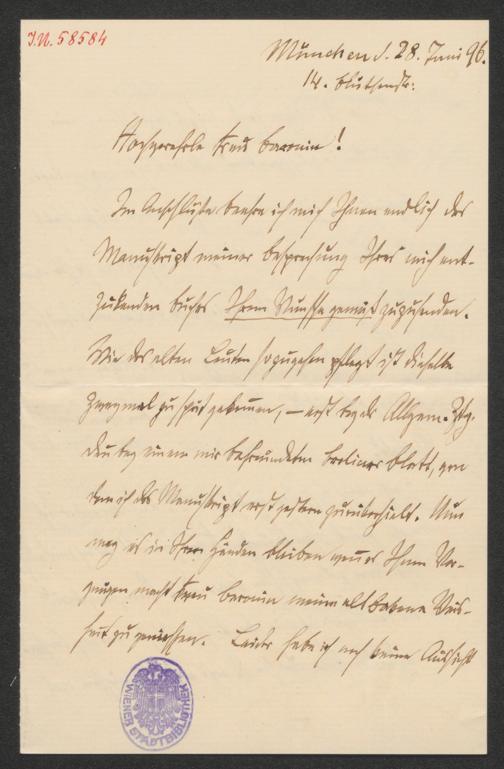 J.N. 58584
München d. 28. Juni 96.
14. Blüthenstr:
Hochverehrte Frau Baronin!
Im Anschluße beehre ich mich Ihnen endlich das
Manuskript meiner Besprechung Ihres mich ent-
zükenden Buches Ihrem Wunsche gemäß zuzusenden.
Wie das alten Leuten so zu gehen pflegt ist dieselbe
zweymal zu spät gekommen, — erst bey der Allgem. Ztg.
dan bey einem mir befreundeten Berliner Blatt, von
dem ich das Manuskript erst gestern zurükerhielt. Nun
mag es in Ihren Händen bleiben wenn es Ihnen Ver-
gnügen macht Frau Baronin meine altbakene Weis-
heit zu genießen. Leider habe ich noch keine Aussicht
WIENER STADTBIBLIOTHEK